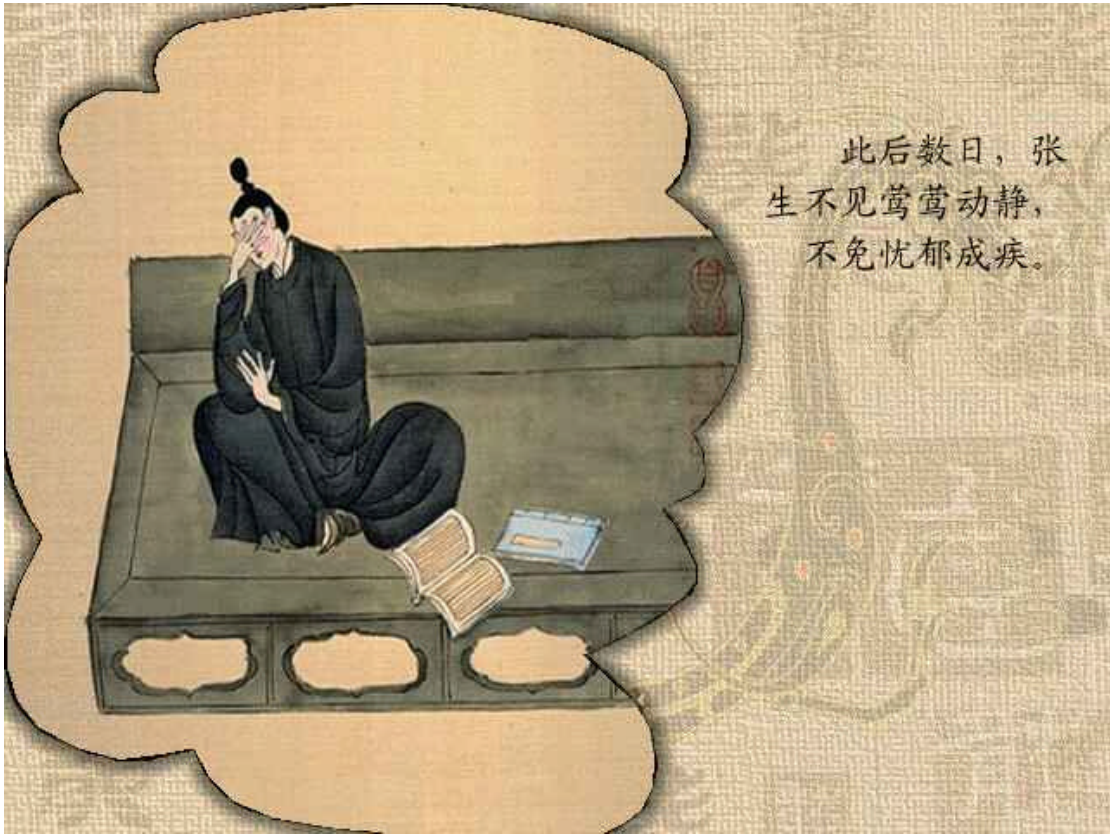 此后数日，张
生不见莺莺动静，
不免忧郁成疾。